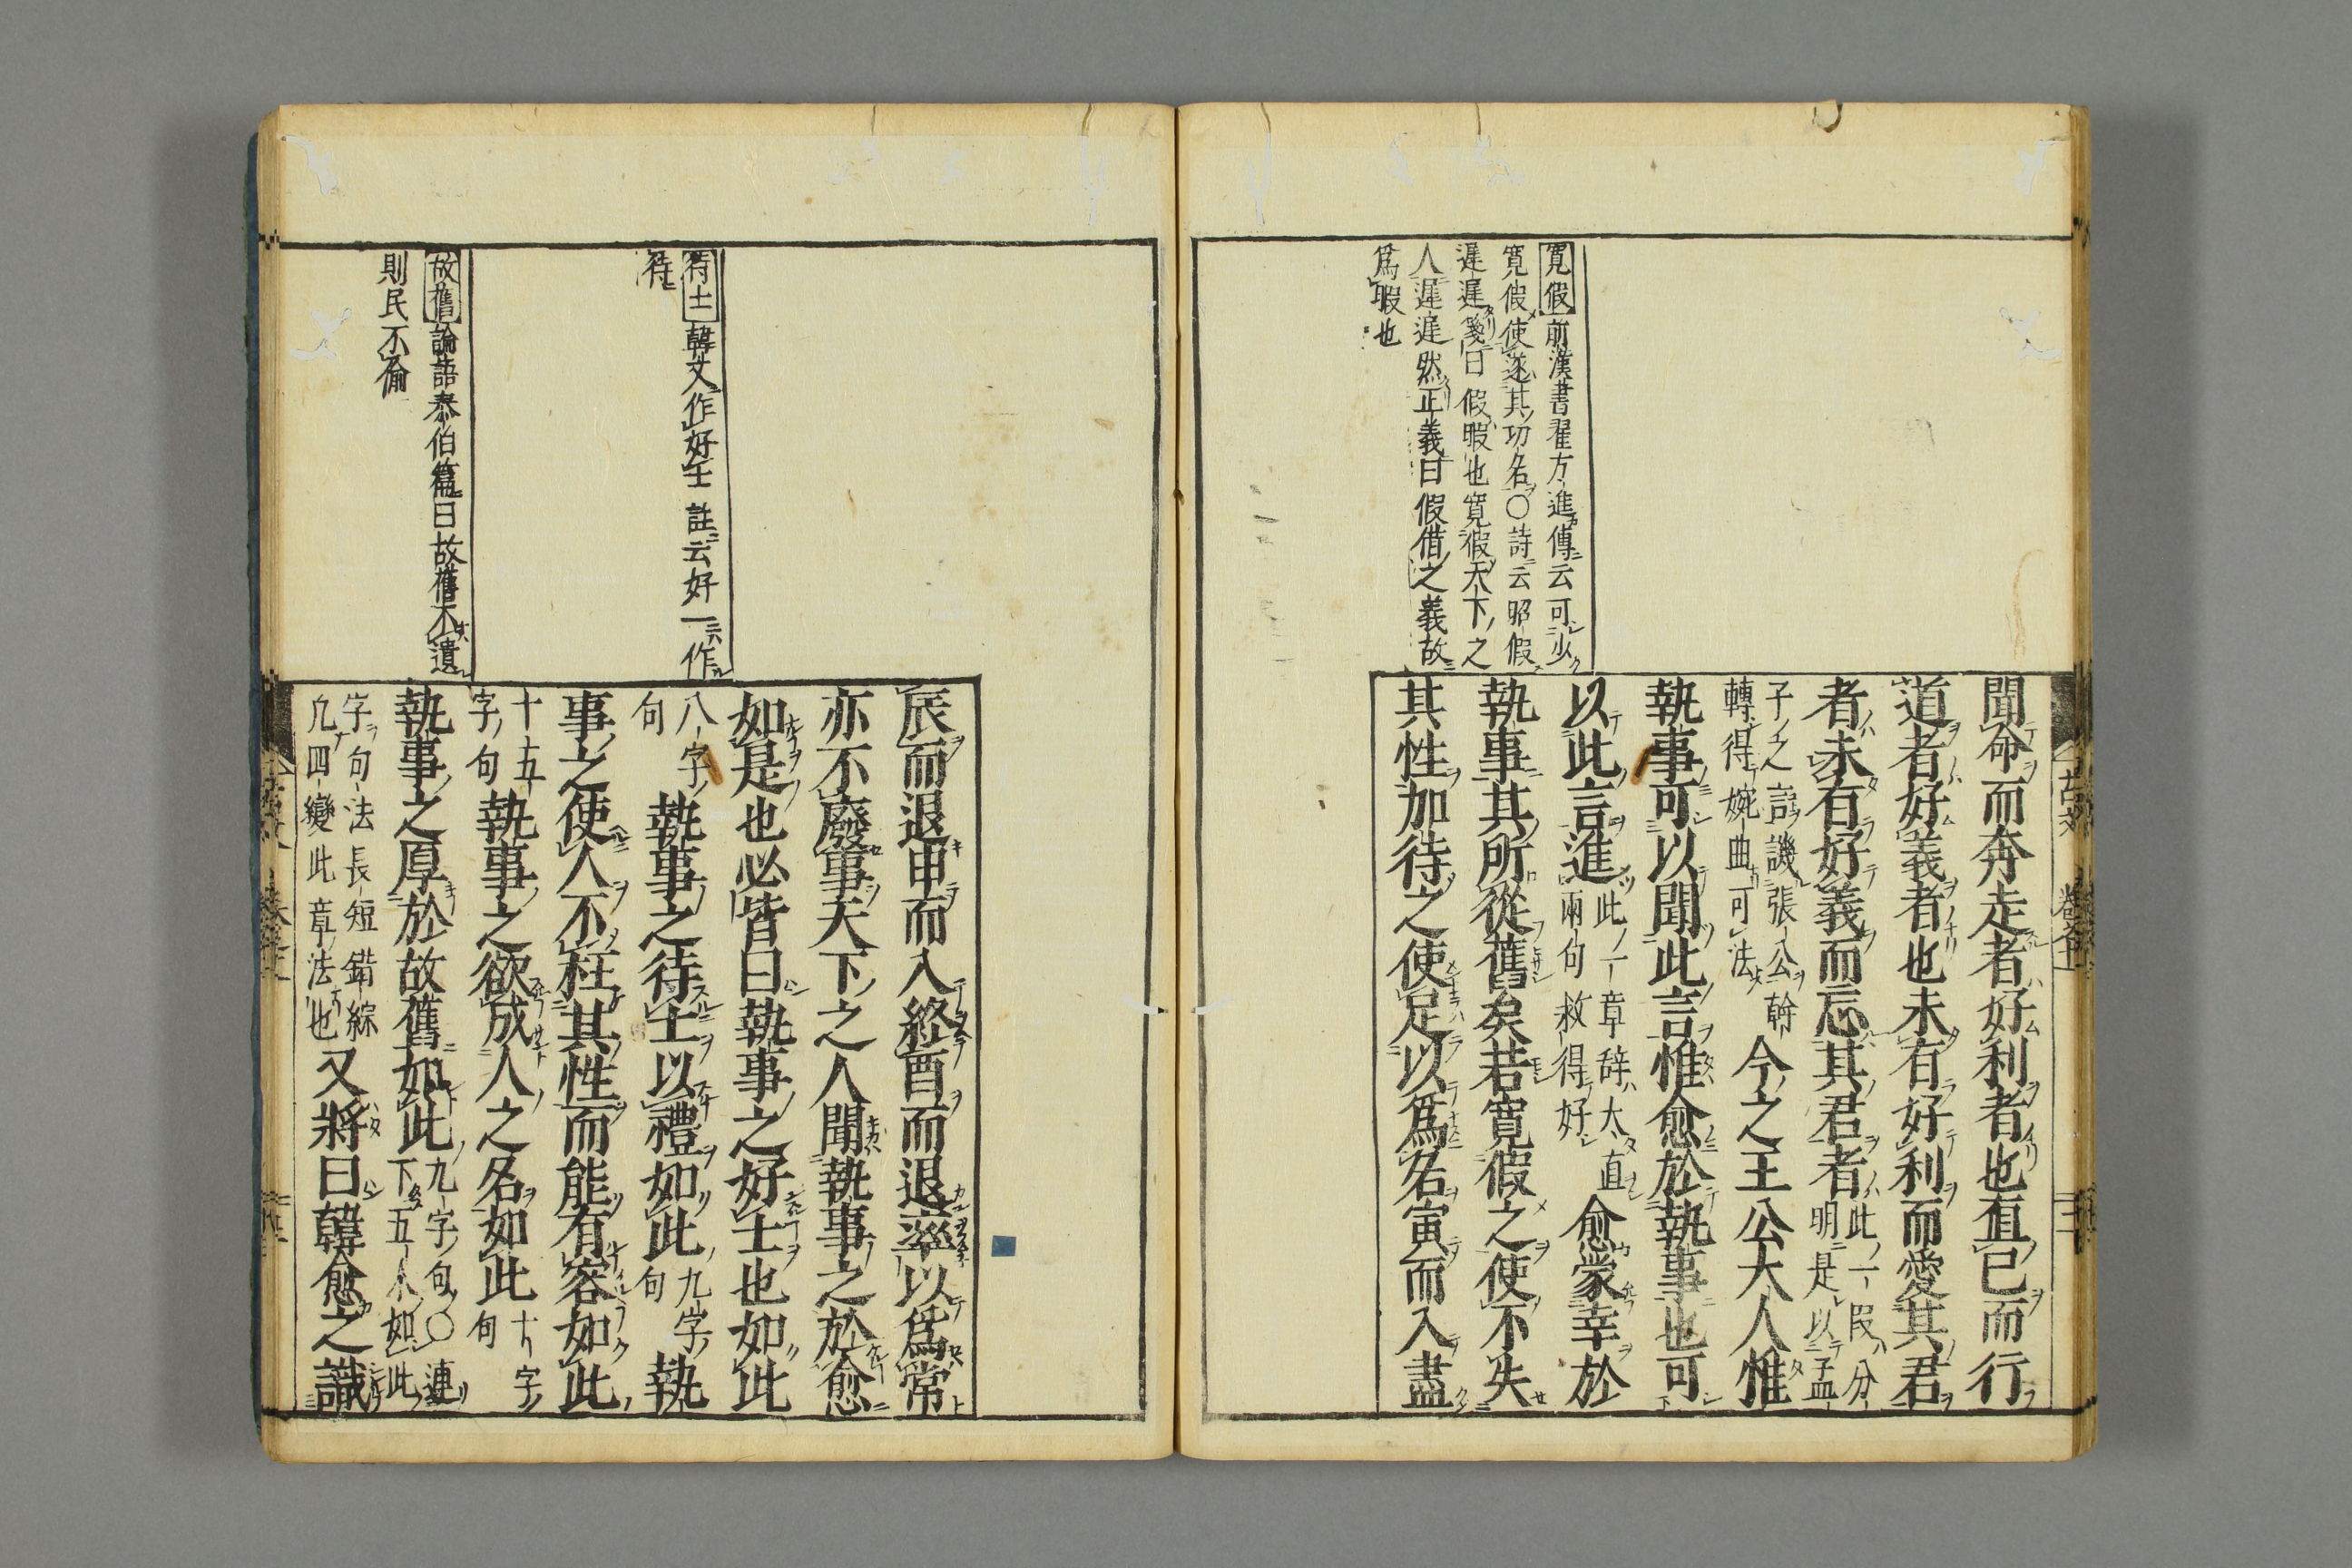 寛假前漢書翟方進傳云可少
寛假使遂其功名〇詩云昭假
遲遲箋曰假暇也寛假天下之
人遲遲然正義曰假借之義故
爲暇也
聞命而奔走者好利者也直己而行
道者好義者也未有好利而愛其君
者未有好義而忘其君者此一段分
明是以孟
子之言譏張公幹
轉得婉曲可法
今之王公大人惟
執事可以聞此言惟愈於執事也可
以此言進此一章辞太直
兩句救得好
愈蒙幸於
執事其所從舊矣若寛假之使不失
其性加待之使足以爲名寅而入盡
待士韓文作好士註云好一作
待
故舊論語泰伯篇曰故舊不遺
則民不偷
辰而退申而入終酉而退率以爲常
亦不廢事天下之人聞執事之於愈
如是也必皆曰執事之好士也如此
八字
句
執事之待士以禮如此九字
句
執
事之使人不枉其性而能有容如此
十五
字句
執事之欲成人之名如此十字
句
執事之厚於故舊如此九字句〇連
下五个如此
字句法長短錯綜
凢四變此章法也
又將曰韓愈之識